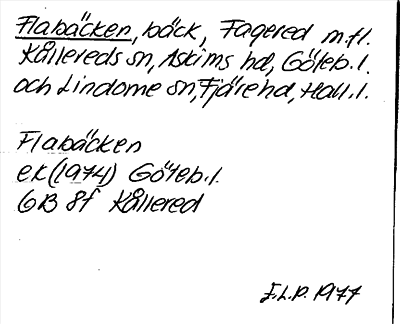 Flabäcken, bäck, Fagered m.fl.
Kållereds sn, Askims hd, Göteb.l.
och Lindome sn, Fjäre hd, Hall.l.
Flabäcken
ek (1974) Göteb.l.
6B 8f Kållered
E.L.P. 1977